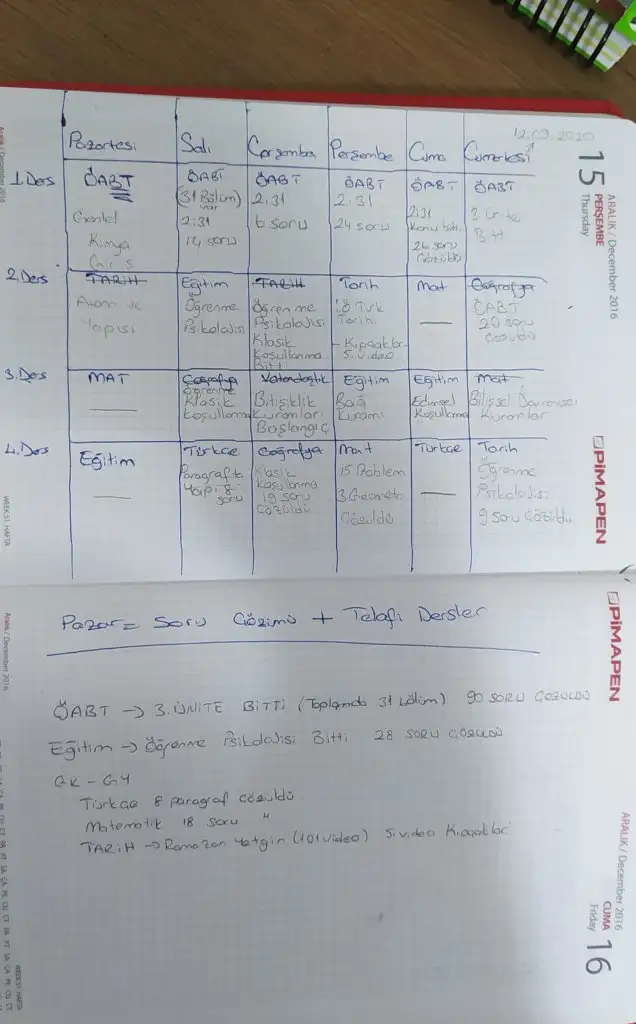 12.09.2020
Pazartesi Salı Çarşamba Perşembe Cuma Cumartesi
1.Ders ÖABT ÖABT ÖABT ÖABT ÖABT ÖABT
Genel (31 Bölüm) 2.31 2.31 2.31 3. Ünite
Kimya var 6 soru 24 soru Konu bitti Bitti
Giriş 2.31 26 soru
14 soru çözüldü
2.Ders TARİH Eğitim TARİH Tarih Mat Coğrafya
Atom ve Öğrenme Öğrenme Türk — ÖABT
Yapısı Psikolojisi Psikolojisi Tarihi 20 soru
Klasik Kıpçaklar çözüldü
Koşullanma 5. video
Bitti
3.Ders MAT Coğrafya Vatandaşlık Eğitim Eğitim Mat
— Öğrenme Bitişiklik Bağ Edimsel Bilişsel Davranışçı
Klasik Kuramları Kuramı Koşullanma Kuramlar
Koşullanma Başlangıç
4.Ders Eğitim Türkçe Coğrafya Mat Türkçe Tarih
— Paragrafta Klasik 15 Problem — Öğrenme
Yapı 8 Koşullanma 3 Geometri Psikolojisi
soru 19 soru çözüldü 9 soru çözüldü
çözüldü
Pazar = Soru Çözümü + Telafi Dersler
ÖABT → 3. ÜNİTE BİTTİ (Toplamda 31 bölüm) 90 SORU ÇÖZÜLDÜ
Eğitim → Öğrenme Psikolojisi Bitti 28 SORU ÇÖZÜLDÜ
GK - GY
Türkçe 8 paragraf çözüldü
Matematik 18 soru "
TARİH → Ramazan Yetgin (101 video) 5. video Kıpçaklar
ARALIK / December 2016
15 PERŞEMBE
Thursday
PİMAPEN
WEEK 51 HAFTA
Aralık / December 2016
PİMAPEN
ARALIK / December 2016
CUMA 16
Friday
Aralık / December 2016
WEEK 51 HAFTA